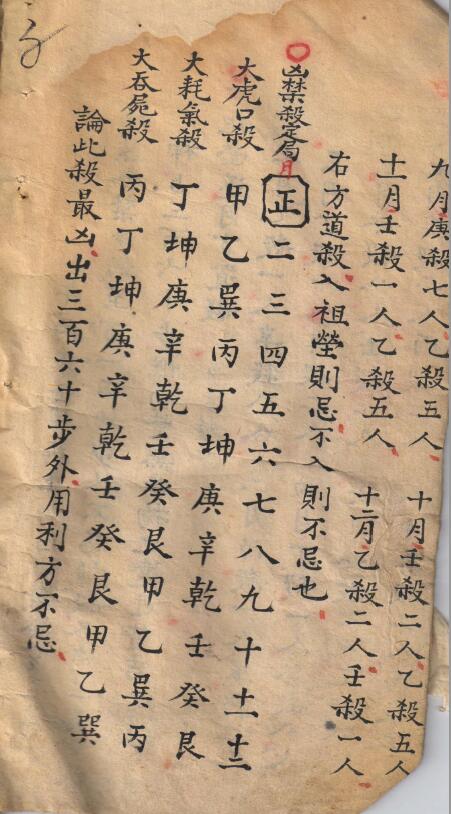 九月庚殺七人乙殺五人　十月壬殺二人乙殺五人
十一月壬殺一人乙殺五人　十二月乙殺二人壬殺一人
右方道殺入祖塋則忌不入則不忌也
○凶禁殺定局月正二三四五六七八九十十一十二
大虎口殺　甲乙巽丙丁坤庚辛乾壬癸艮
大耗氣殺　丁坤庚辛乾壬癸艮甲乙巽丙
大吞屍殺　丙丁坤庚辛乾壬癸艮甲乙巽
論此殺最凶出三百六十步外用利方不忌